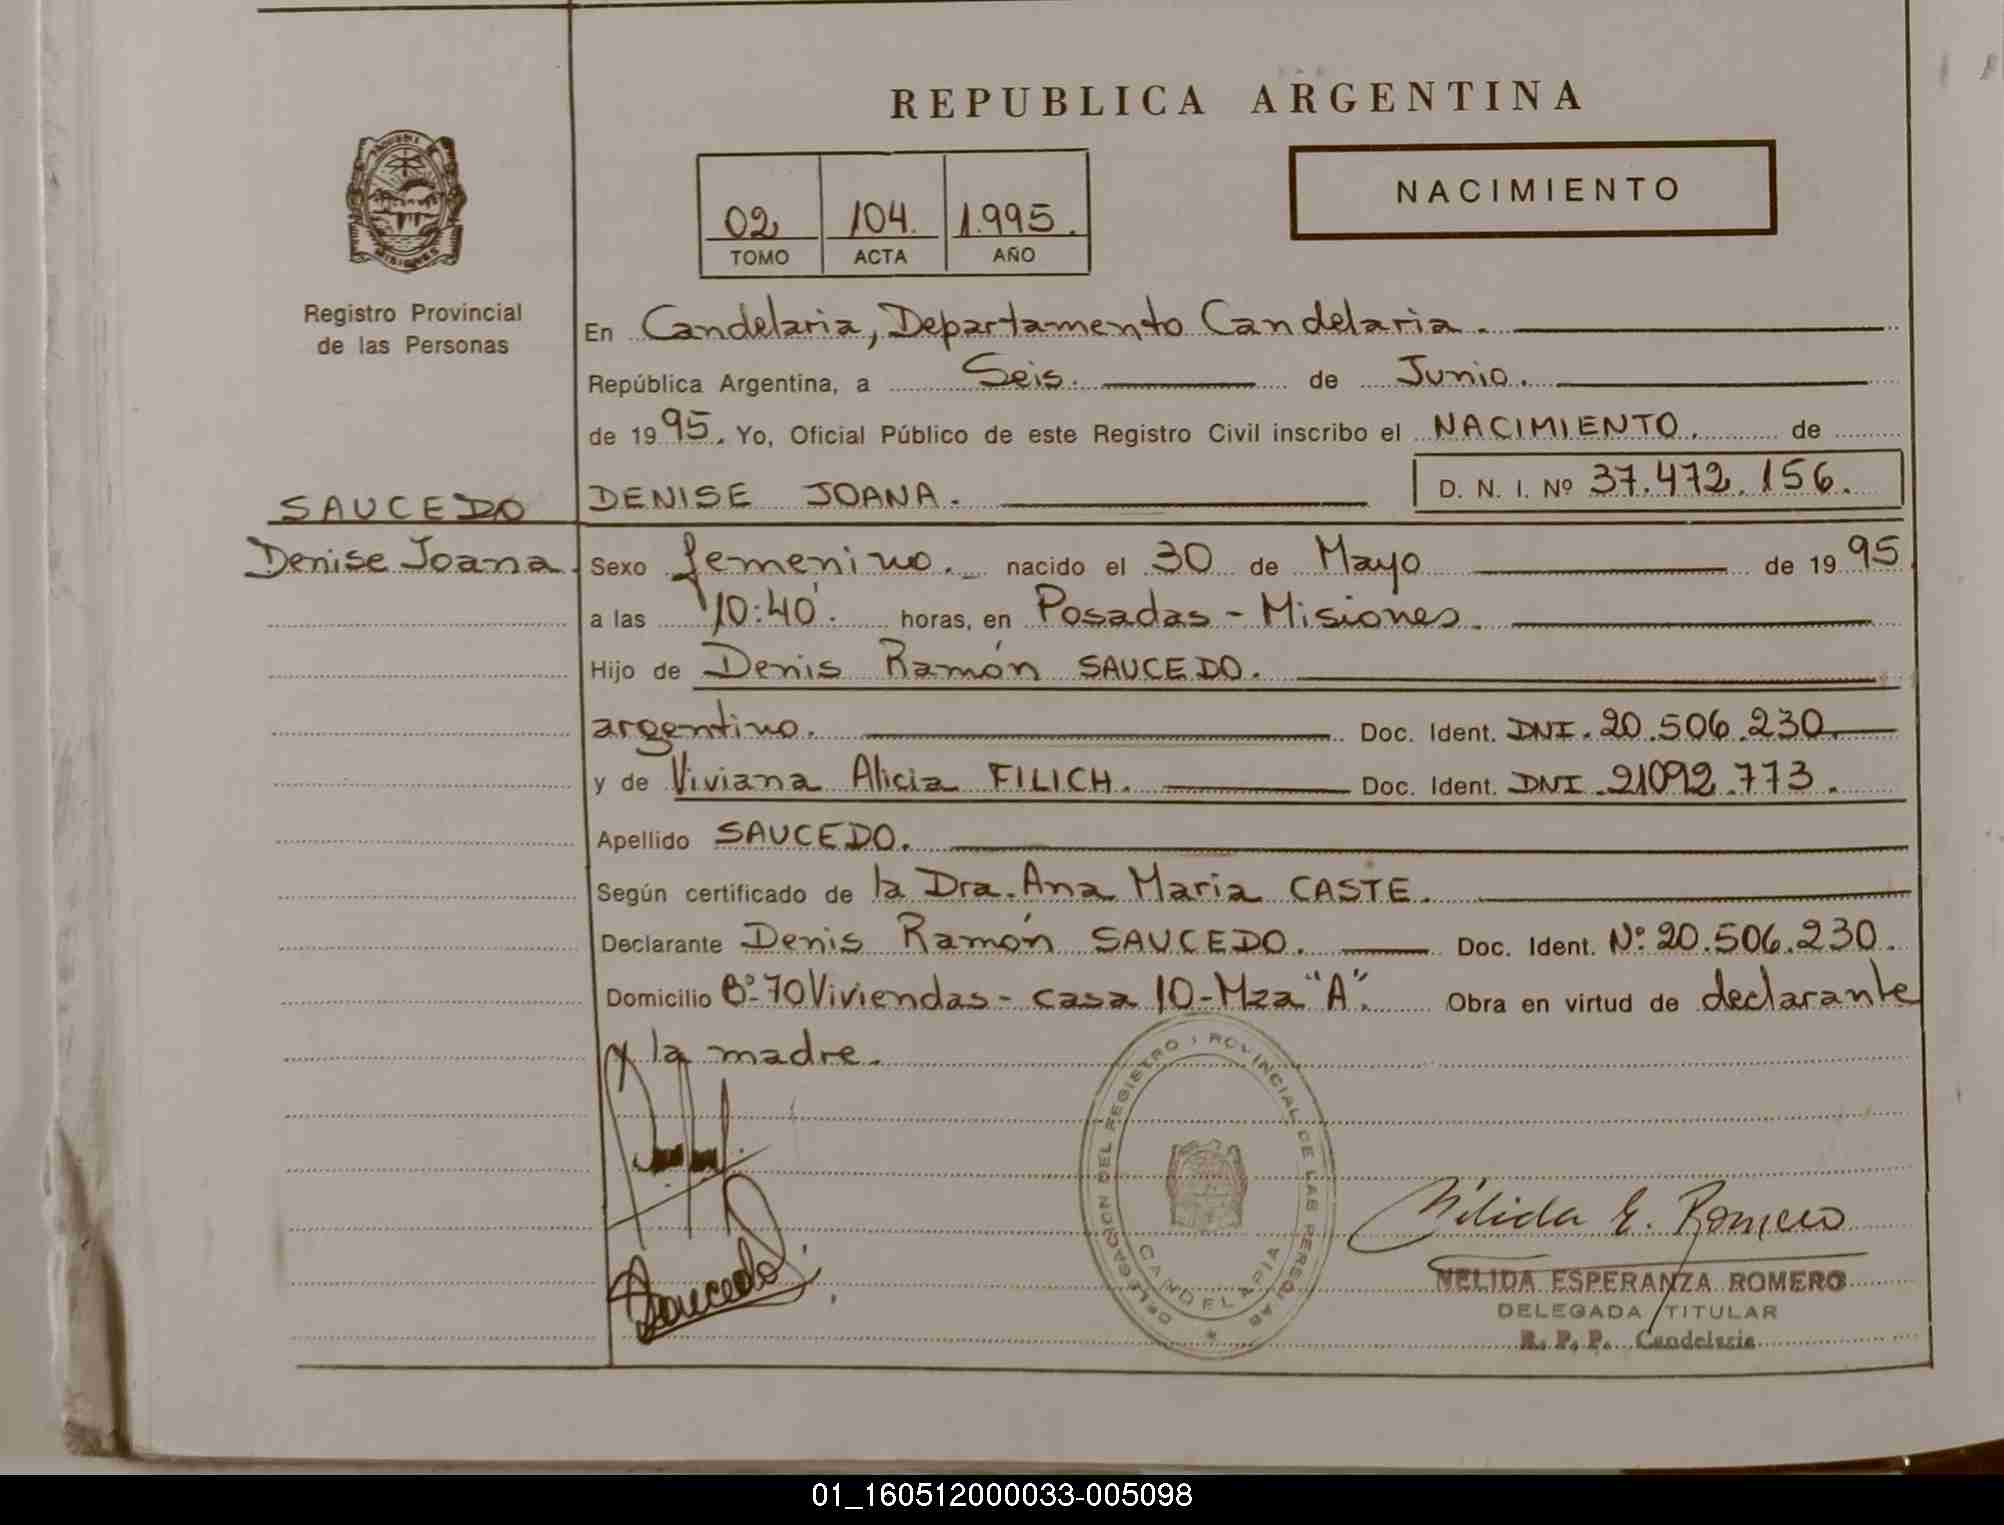 REPUBLICA ARGENTINA
NACIMIENTO
02 104. 1.995.
TOMO ACTA AÑO
Registro Provincial
de las Personas
En Candelaria, Departamento Candelaria.
República Argentina, a Seis. de Junio.
de 1995. Yo, Oficial Público de este Registro Civil inscribo el NACIMIENTO. de
DENISE JOANA. D. N. I. Nº 37.472.156.
SAUCEDO
Denise Joana.
Sexo femenino. nacido el 30 de Mayo de 1995
a las 10:40'. horas, en Posadas - Misiones.
Hijo de Denis Ramón SAUCEDO.
argentino. Doc. Ident. DNI. 20.506.230
y de Viviana Alicia FILICH. Doc. Ident. DNI. 21092.773.
Apellido SAUCEDO.
Según certificado de la Dra. Ana Maria CASTE.
Declarante Denis Ramón SAUCEDO. Doc. Ident. Nº 20.506.230.
Domicilio Bº 70 Viviendas - casa 10 - Mza "A". Obra en virtud de declarante
y la madre.
DELEGACION DEL REGISTRO PROVINCIAL DE LAS PERSONAS
CANDELARIA
Saucedo
Nélida E. Romero
NELIDA ESPERANZA ROMERO
DELEGADA TITULAR
R. P. P. Candelaria
01_160512000033-005098